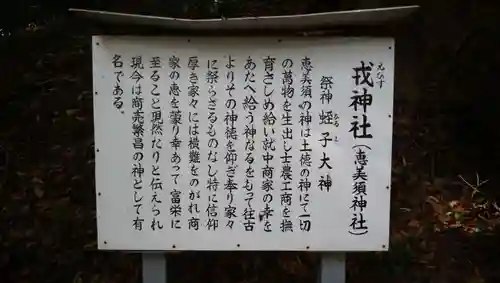 戎神社（恵美須神社）
えびす
祭神 蛭子大神
恵美須の神は土徳の神にて一切
の萬物を生出し士農工商を撫
育さしめ給い就中商家の幸を
あたへ給う神なるをもって往古
よりその神徳を仰ぎ奉り家々
に祭らざるものなし特に信仰
厚き家々には横難をのがれ商
家の恵を蒙り幸あって富栄に
至ること現然たりと伝えられ
現今は商売繁昌の神として有
名である。